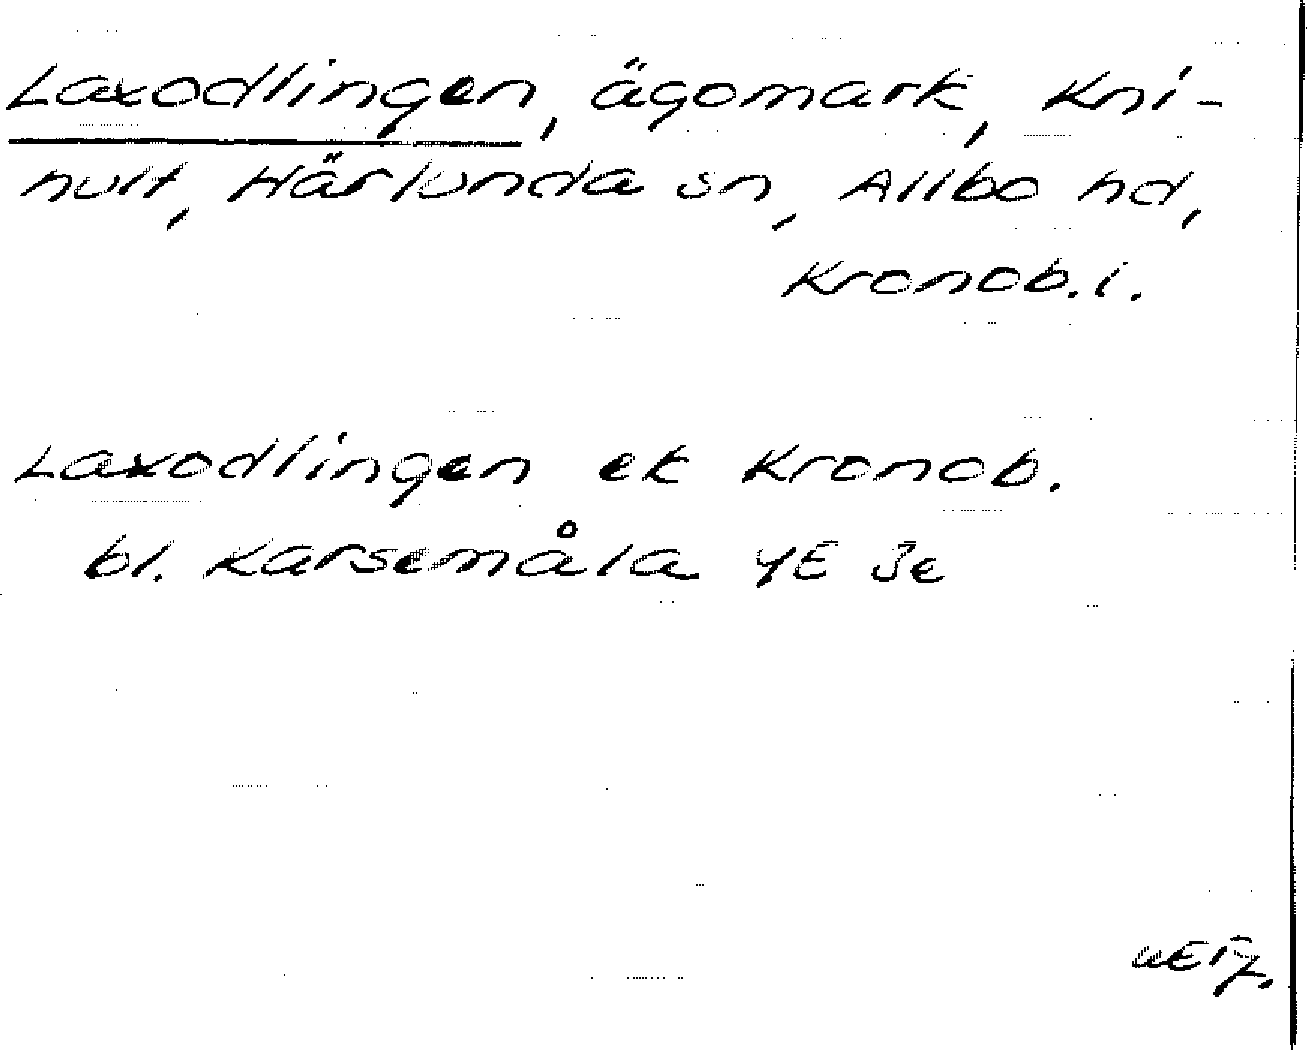 Laxodlingen, ägomark, Kni-
hult, Härlunda sn, Allbo hd,
Kronob. l.
Laxodlingen ek Kronob.
bl. Karsemåla 4E 3e